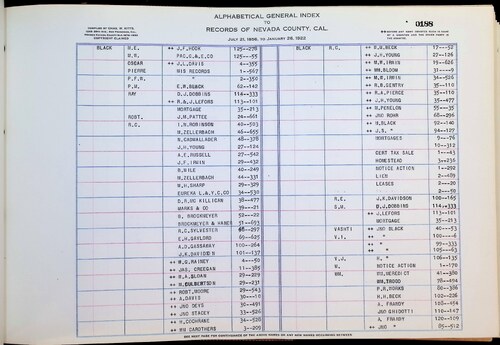 ALPHABETICAL GENERAL INDEX
TO
RECORDS OF NEVADA COUNTY, CAL.
JULY 21, 1856, TO JANUARY 28, 1922
0188
BLACK M.E. ↔ J.F.HOOK 125--278
D.W. PAC.G.& E.CO 125---55
OSCAR ↔ J.L.DAVIS 4---355
PIERRE HIS RECORDS 1---567
P.F. " 2---350
P.M. E.M.BLACK 82--142
RAY D.J.DOBBINS 114--333
↔ R.& J.LEFORS 113--101
MORTGAGE 35--213
ROBT. J.M.PATTEE 24--661
R.C. I.N.ROBINSON 40--503
M.ZELLERBACH 46--655
N.CADWALLADER 48--378
J.H.YOUNG 27--124
A.E.RUSSELL 27--542
J.F.IRVIN 29--432
B.HILE 40--249
M.ZELLERBACH 44--331
W.H.SHARP 29--329
EUREKA L.& Y.C.CO 34--530
D.R.MC KILLICAN 38--477
MARKS & CO 39---21
D. BROCKMEYER 52---22
BROCKMEYER & HANEY 51--693
R.C.SYLVESTER 68--297
E.H.GAYLORD 69--625
A.D.GASSAWAY 100--264
J.K.DAVIDSON 101--137
↔ M.G.RAINEY 4---50
↔ JAS. CREEGAN 11--385
↔ R.A.SLOAN 29--229
↔ W.CULBERTSON 29--231
↔ ROBT.MOORE 29--543
↔ A.DAVIS 30---10
↔ JNO DEYS 30--491
↔ JNO STACEY 33--526
↔ H.COCHRANE 34--526
↔ WM CAROTHERS 3--209
BLACK R.C. ↔ R.G.NECK 17---52
↔ J.H.YOUNG 27--126
↔ M.E.IRVIN 15--626
↔ WM.BLOOM 31---9
↔ M.E.IRVIN 34--526
↔ R.M.GENTRY 35--110
↔ R.A.PIERCE 35--110
↔ J.H.YOUNG 35--477
↔ M.PERELON 55---35
↔ JNO ROHR 68--296
↔ M.BLACK 92--140
↔ J.S. " 94--127
MORTGAGES 9---76
" 10--312
CERT TAX SALE 1---45
HOMESTEAD 3--236
NOTICE ACTION 1--292
LIEN 2--489
LEASES 2---20
" 2---59
R.E. J.K.DAVIDSON 100--165
S.M. D.J.DOBBINS 114--333
↔ J.LEFORS 113--101
MORTGAGE 35--213
VASHTI ↔ JNO BLACK 40---53
V.I. ↔ " 100---6
↔ " 99--333
↔ " 105--63
V.J. ↔ " 106--135
W. NOTICE ACTION 1--170
WM. WM.HEREDICT 41--380
WM.TROOD 78--494
P.B.HORKS 86--386
H.H.BECK 100--226
A. FRARDY 108--494
JNO GHIDOTTI 110--147
A. FRARDY 120--109
↔ JNO " 85--512